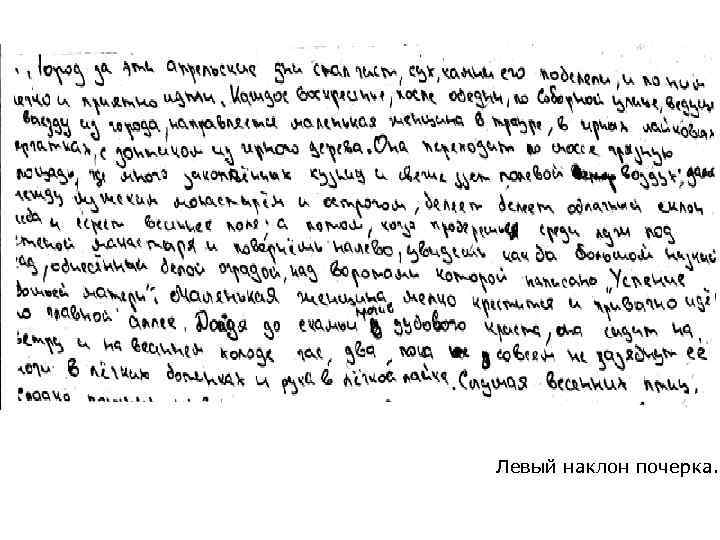 Город за эти апрельские дни стал чист, сух, камни его побелели, и по ним
легко и приятно идти. Каждое воскресенье, после обедни, по Соборной улице, ведущей
выезду из города, направляется маленькая женщина в трауре, в чёрных лайковых
перчатках, с зонтиком из чёрного дерева. Она переходит по шоссе грязную
площадь, где много закопчённых кузниц и свеже дует полевой воздух; далее
между мужским монастырём и острогом, белеет белеет облачный склон
неба и сереет весеннее поле; а потом, когда проберешься среди луж под
стеной манастыря и повернёшь налево, увидешь как бы большой низкий
сад, обнесённый белой оградой, над воротами которой написано "Успение
божьей матери". Маленькая женщина мелко крестится и привычно идёт
по главной аллее. Дойдя до скамьи против дубового креста, она сидит на
ветру и на весеннем холоде час, два, пока не совсем не зазябнут её
ноги в лёгких ботинках и рука в лёгкой лайке. Слушая весенних птиц,
сладко
Левый наклон почерка.